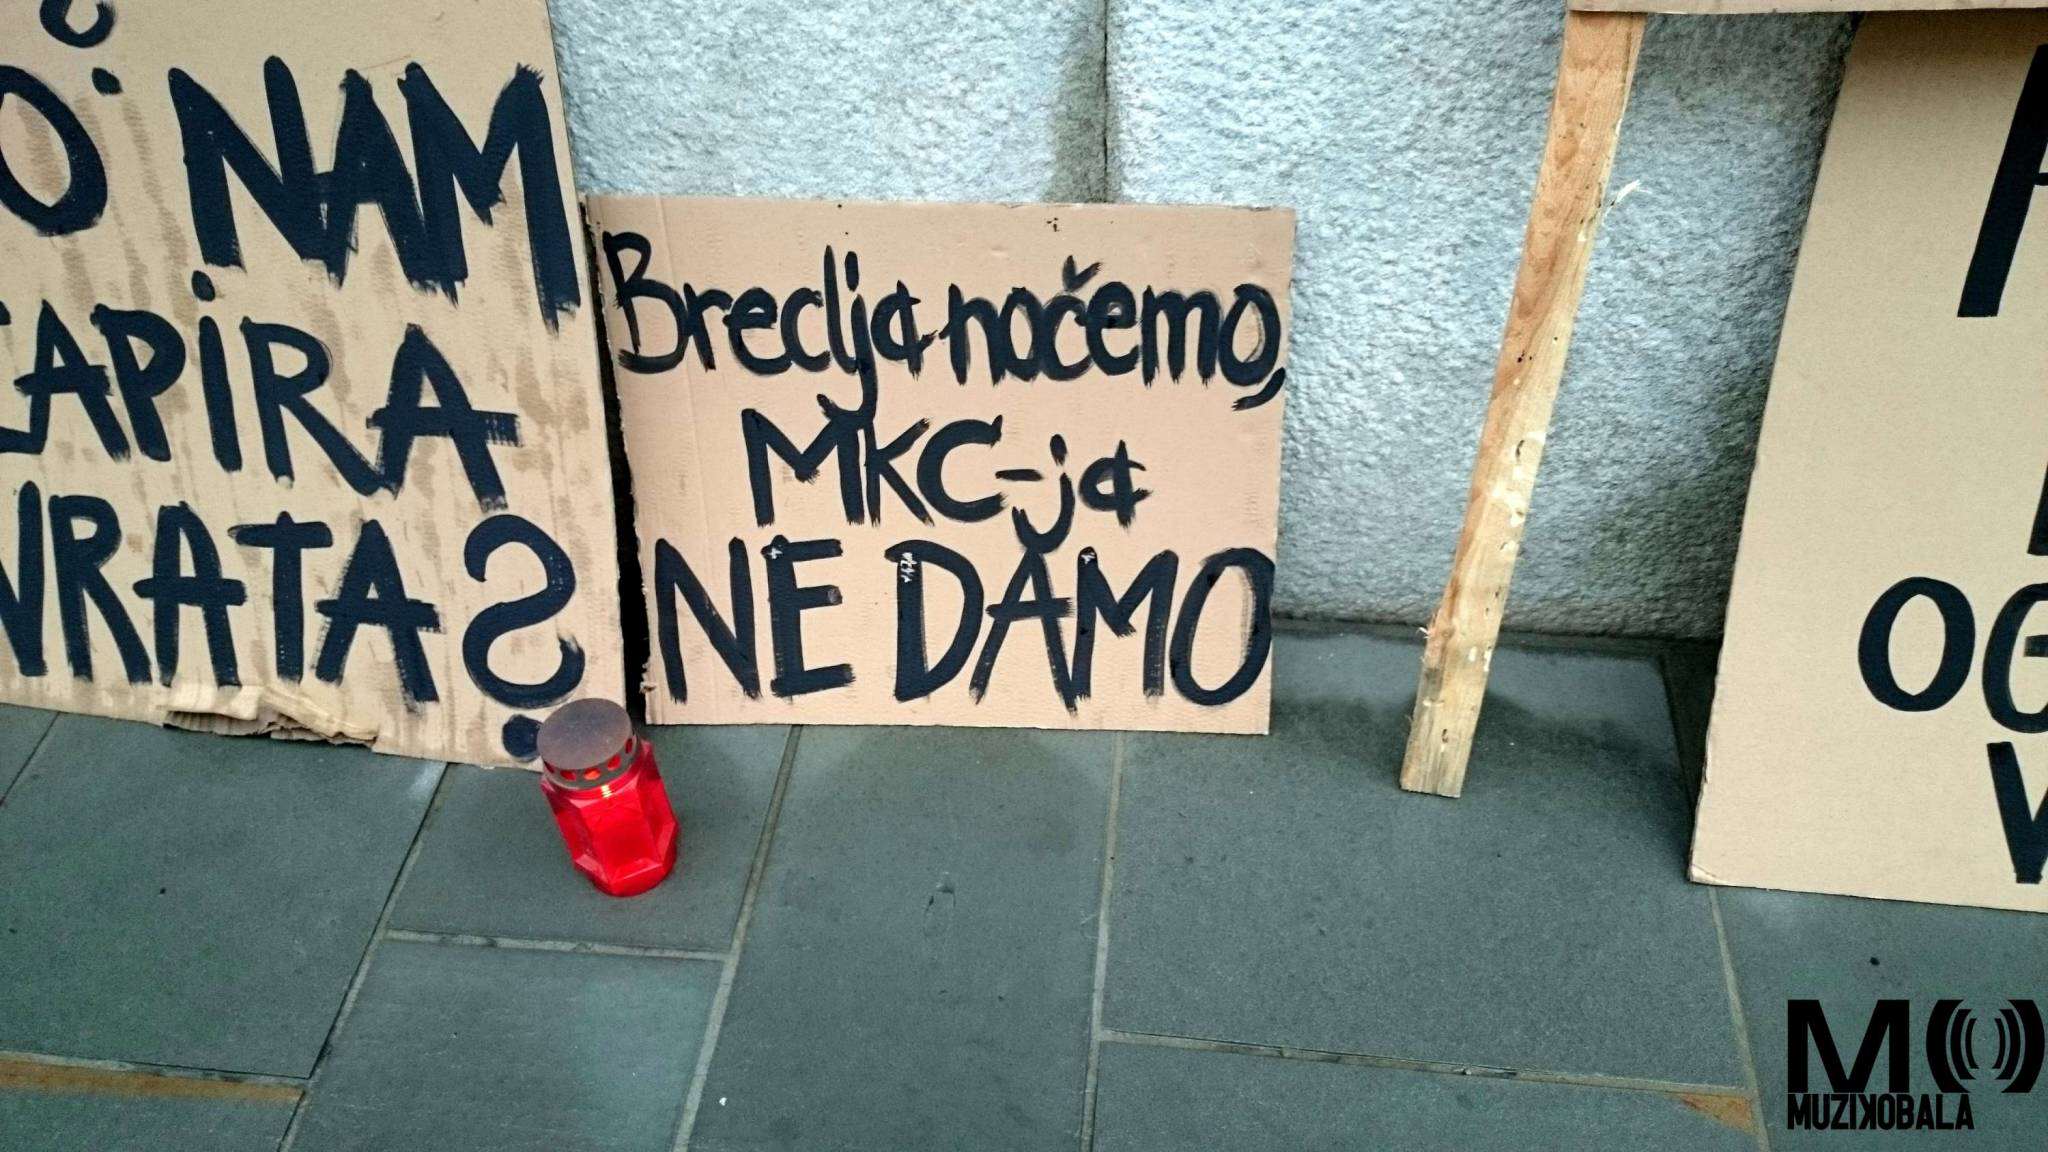 NAM
ZAPIRA
VRATA?
Breclja nočemo,
MKC-ja
NE DAMO
MUZIKOBALA